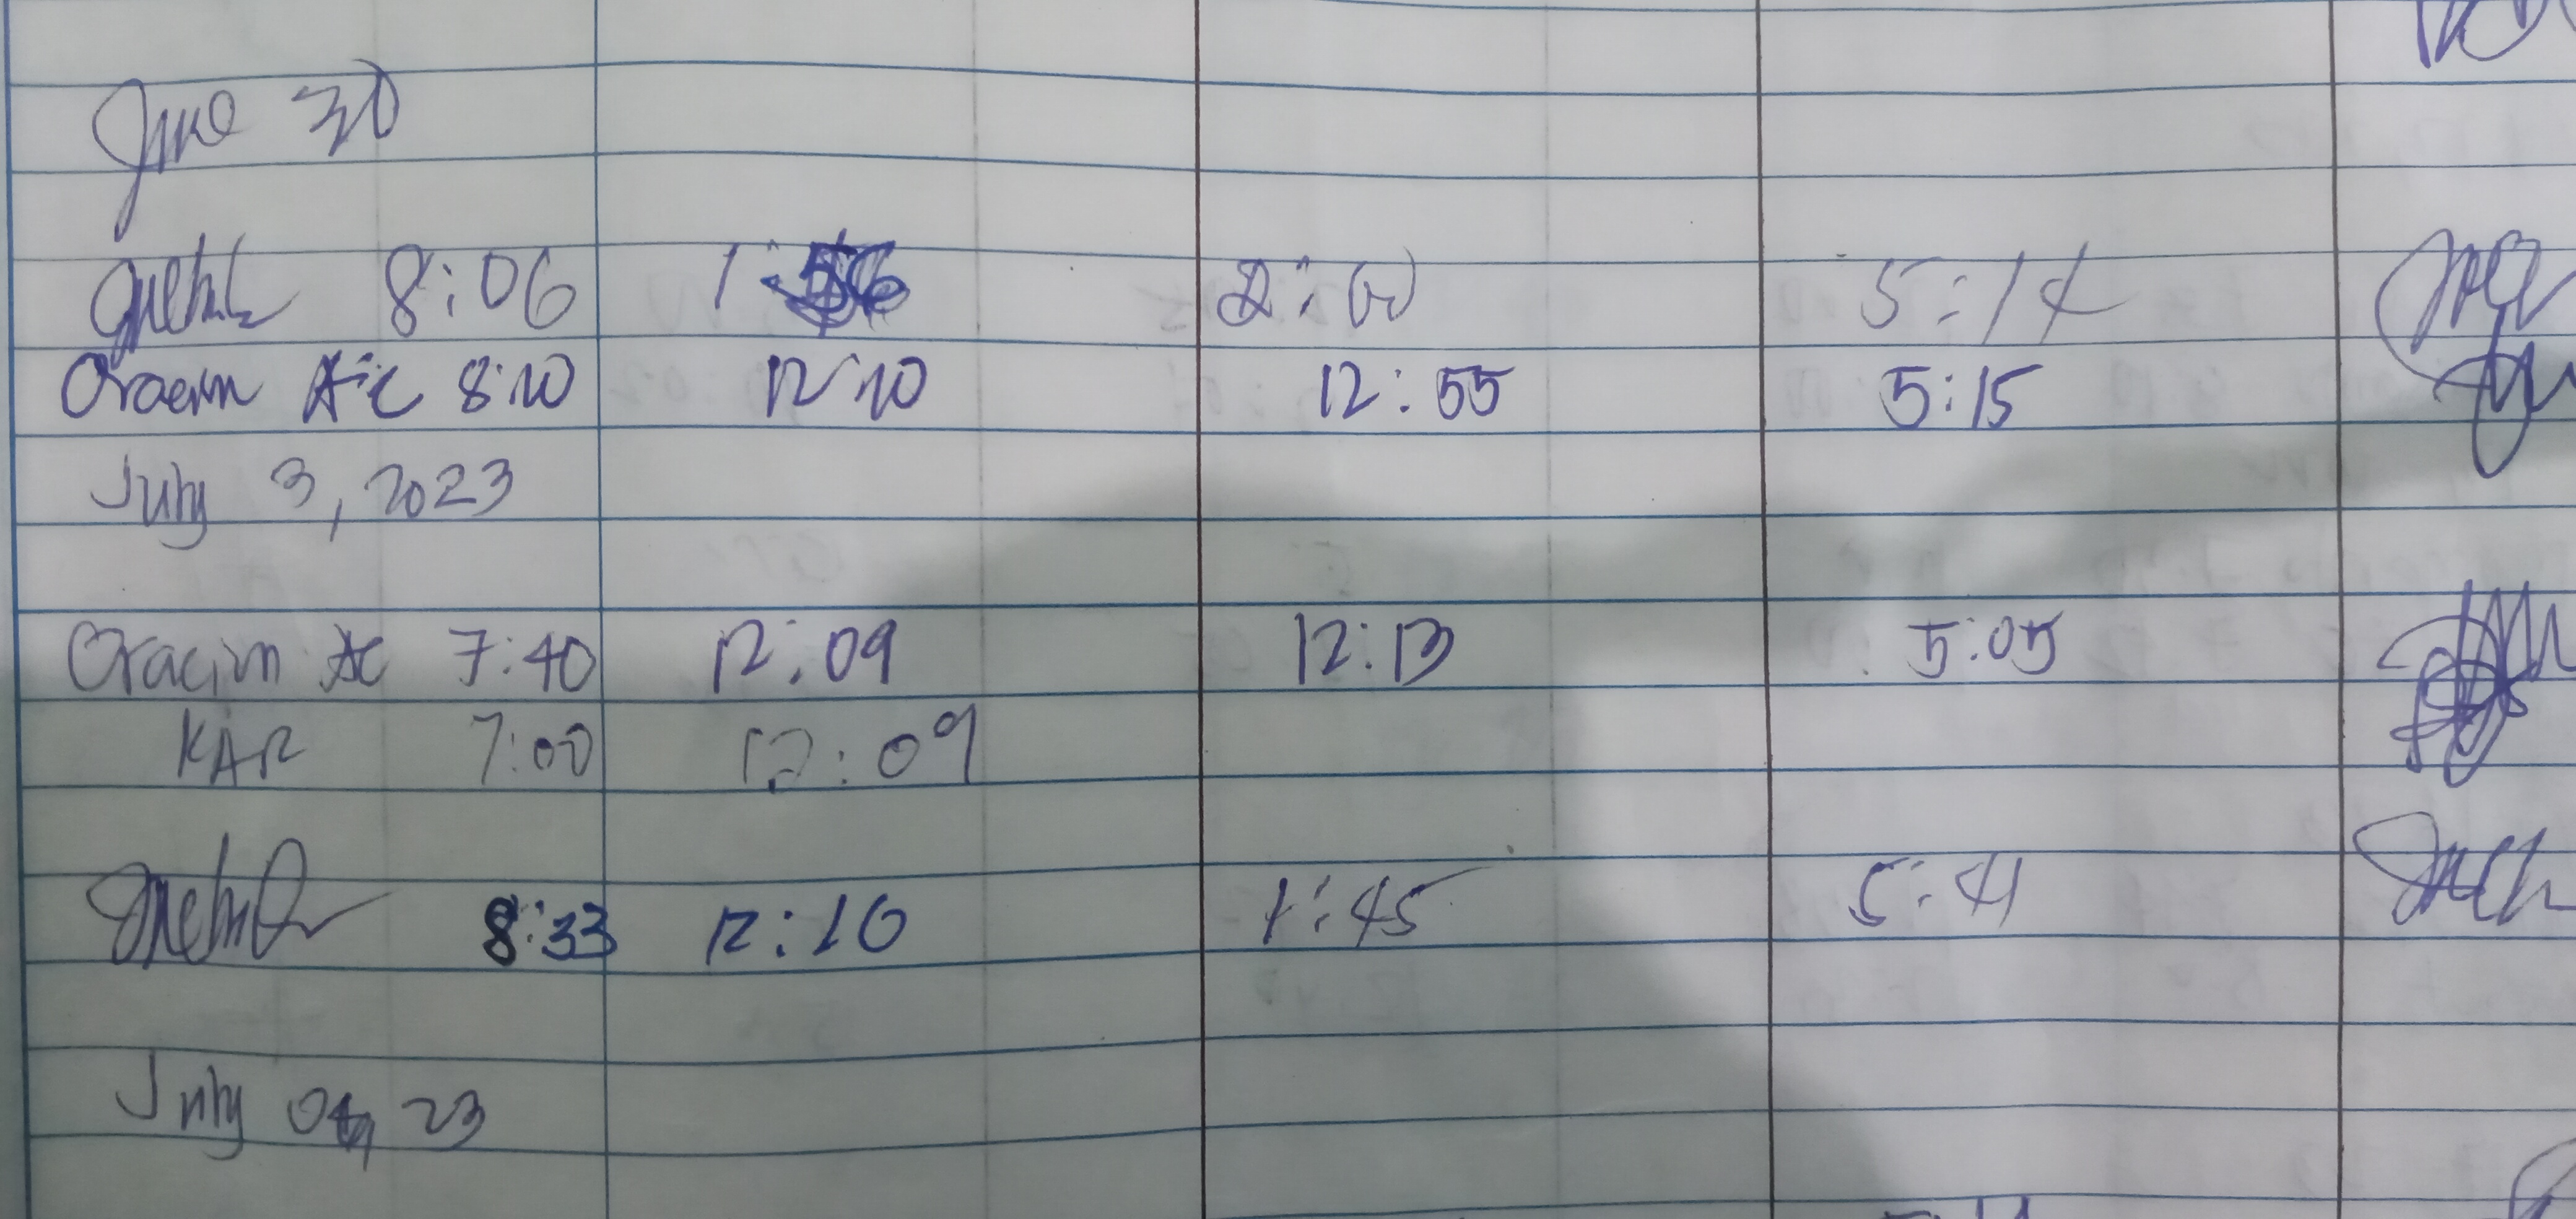 June 30
8:06 1:56 2:00 5:14
Oracion A·C 8:10 12:10 12:55 5:15
July 3, 2023
Oracion AC 7:40 12:09 12:13 5:05
KAR 7:00 12:09
8:33 12:10 1:45 5:41
July 04, 23